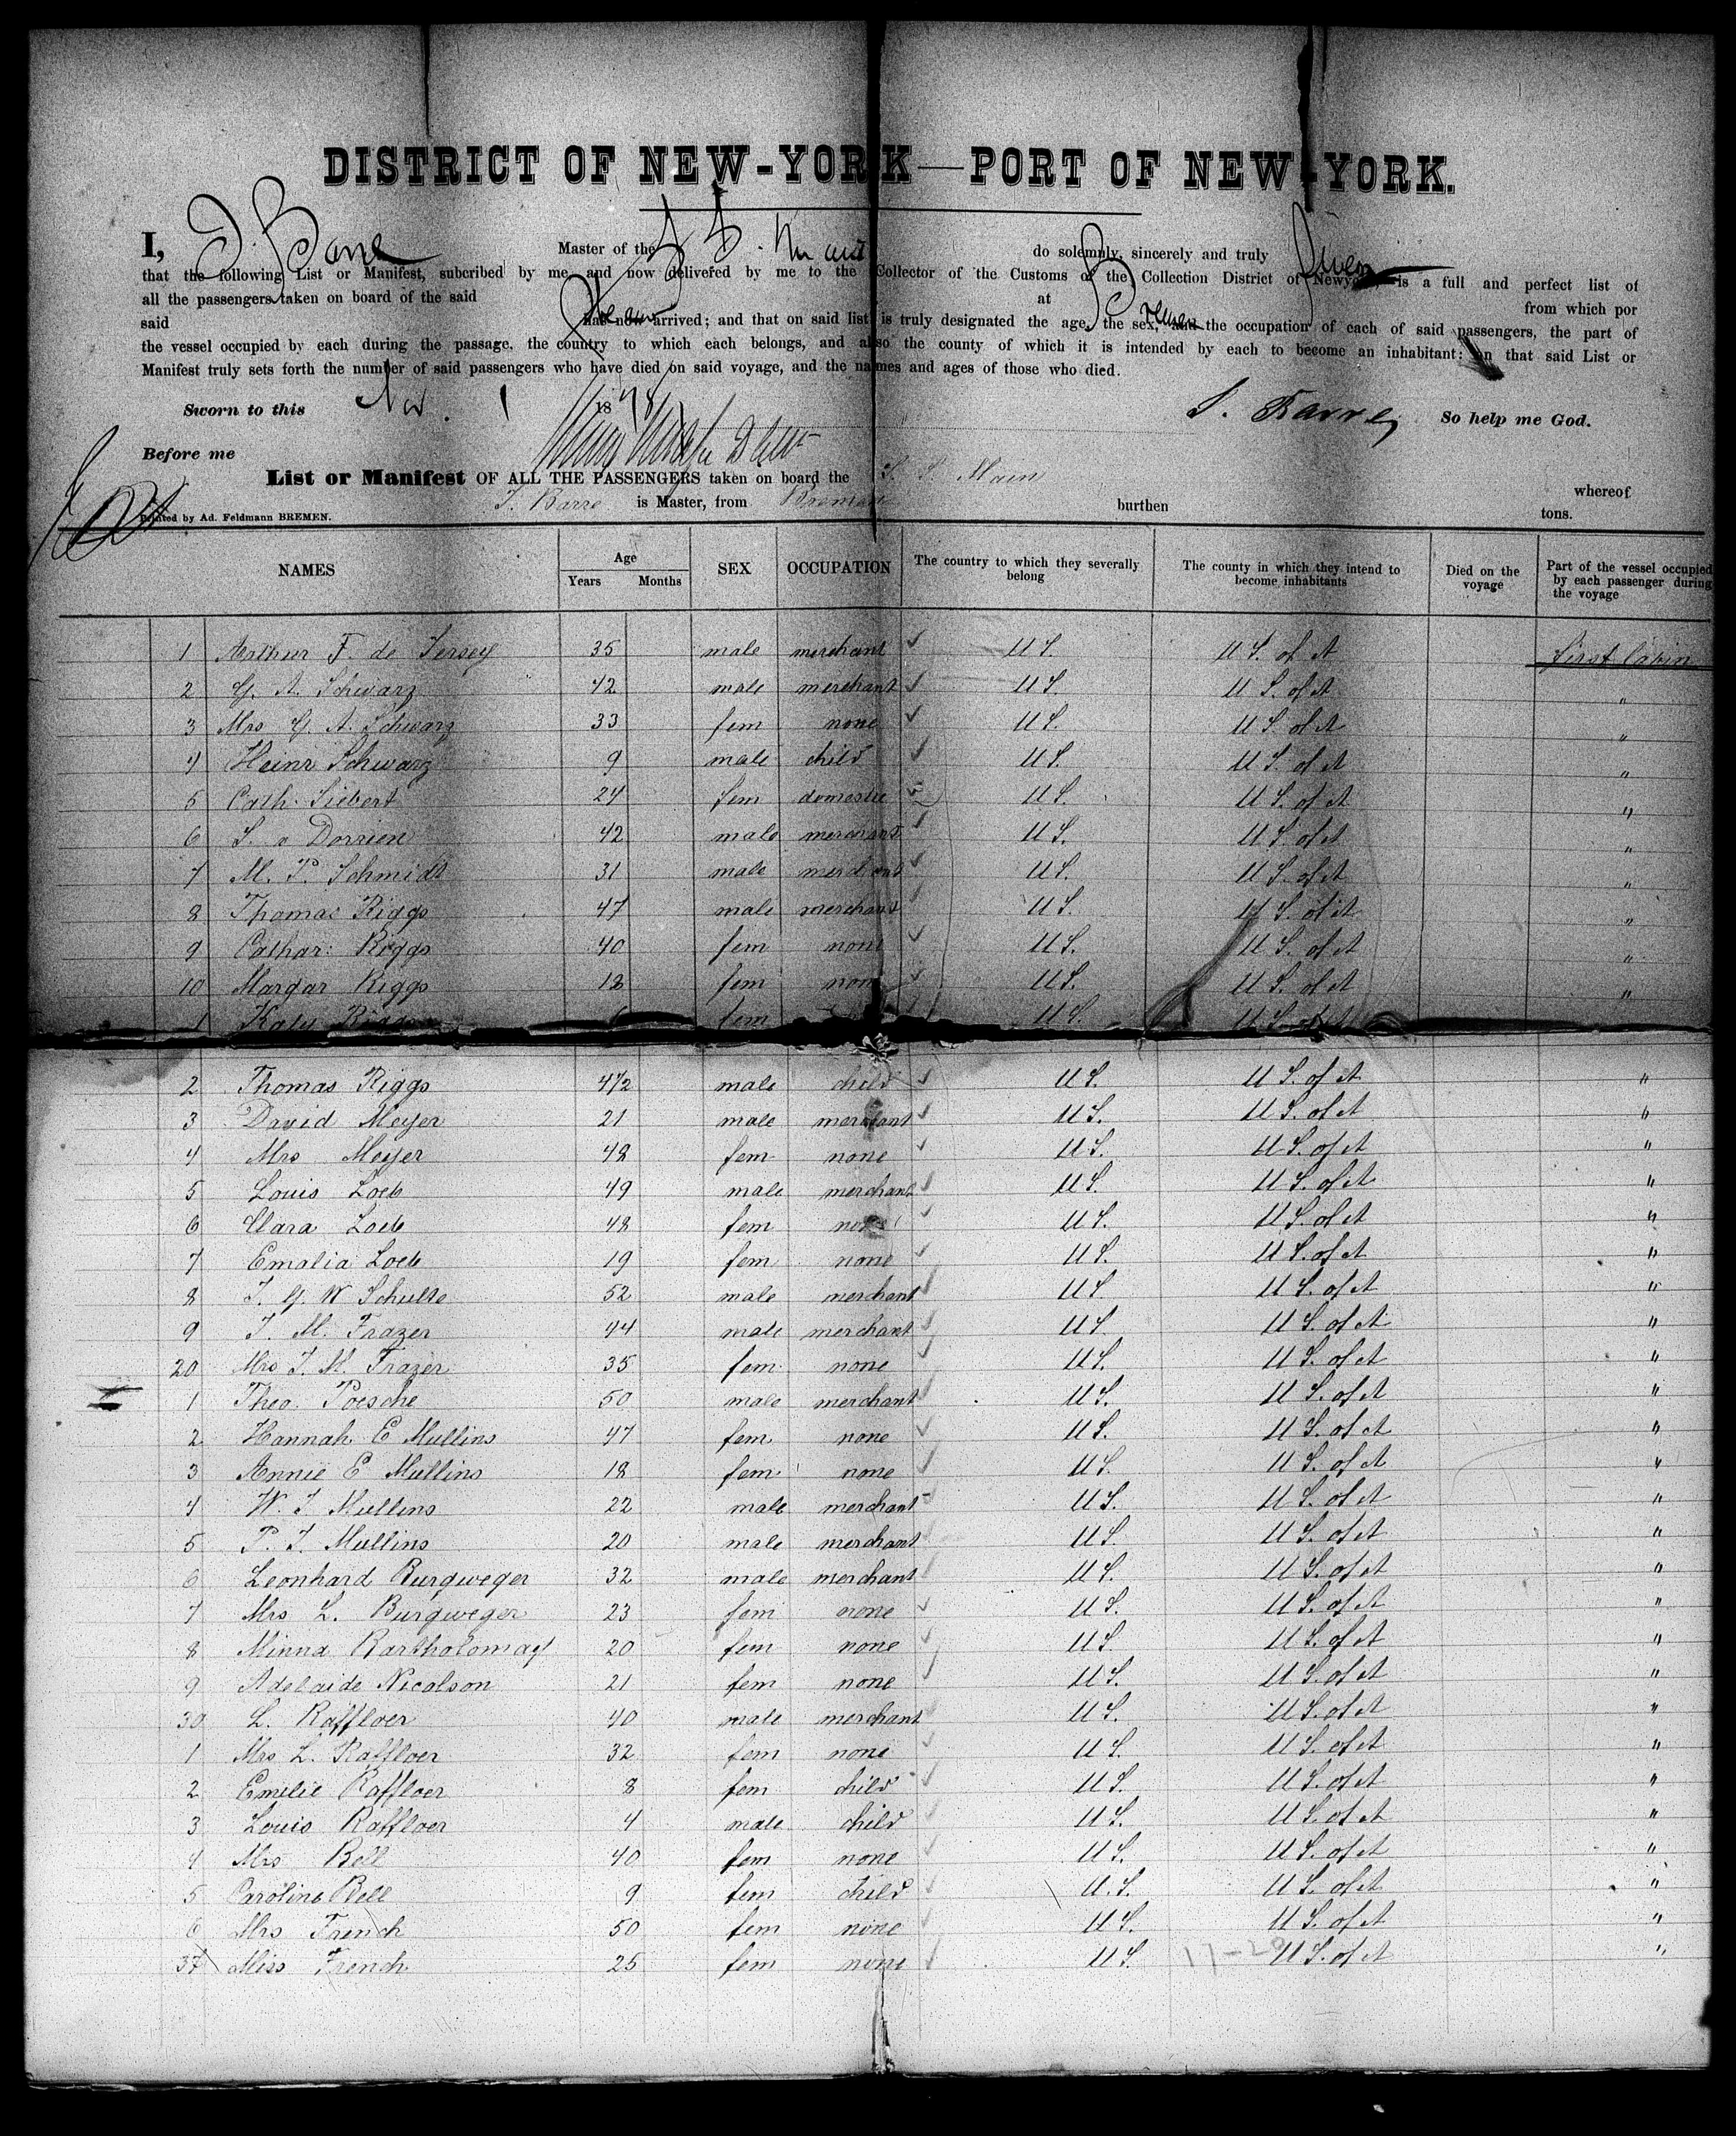 DISTRICT OF NEW-YORK — PORT OF NEW-YORK.
I, J. Barre Master of the S S. Main do solemnly, sincerely and truly Swear
that the following List or Manifest, subcribed by me, and now delivered by me to the Collector of the Customs of the Collection District of Newyork, is a full and perfect list of
all the passengers taken on board of the said Steamer at Bremen from which por
said has now arrived; and that on said list is truly designated the age, the sex, and the occupation of each of said passengers, the part of
the vessel occupied by each during the passage, the country to which each belongs, and also the county of which it is intended by each to become an inhabitant: on that said List or
Manifest truly sets forth the number of said passengers who have died on said voyage, and the names and ages of those who died.
Sworn to this Nov. 1 1878 J. Barre So help me God.
Before me
List or Manifest OF ALL THE PASSENGERS taken on board the S. S. Main whereof
J. Barre is Master, from Bremen burthen tons.
Printed by Ad. Feldmann BREMEN.
NAMES Age Years Months SEX OCCUPATION The country to which they severally belong The county in which they intend to become inhabitants Died on the voyage Part of the vessel occupied by each passenger during the voyage
1 Arthur F. de Jersey 35 male merchant U S. U S. of A First Cabin
2 G. A. Schwarz 42 male merchant U S. U S. of A "
3 Mrs G. A. Schwarz 33 fem none U S. U S. of A "
4 Heinr Schwarz 9 male child U S. U S. of A "
5 Cath. Siebert 24 fem domestic U S. U S. of A "
6 S. v Dorrien 42 male merchant U S. U S. of A "
7 M. P. Schmidt 31 male merchant U S. U S. of A "
8 Thomas Riggs 47 male merchant U S. U S. of A "
9 Cathar: Riggs 40 fem none U S. U S. of A "
10 Margar Riggs 18 fem none U S. U S. of A "
1 Katy Riggs 6 fem U S. U S. of A
2 Thomas Riggs 4 1/2 male child U S. U S. of A "
3 David Meyer 21 male merchant U S. U S. of A "
4 Mrs Meyer 48 fem none U S. U S. of A "
5 Louis Loeb 49 male merchant U S. U S. of A "
6 Clara Loeb 48 fem none U S. U S. of A "
7 Emalia Loeb 19 fem none U S. U S. of A "
8 J. G. W Schulte 52 male merchant U S U S. of A "
9 J. M. Frazer 44 male merchant U S. U S. of A "
20 Mrs J. M. Frazer 35 fem none U S. U S. of A "
1 Theo. Poesche 50 male merchant U S. U S. of A "
2 Hannah E Mullins 47 fem none U S. U S. of A "
3 Annie E Mullins 18 fem none U S. U S. of A "
4 W. J Mullins 22 male merchant U S. U S. of A "
5 P. J. Mullins 20 male merchant U S. U S. of A "
6 Leonhard Burgweger 32 male merchant U S. U S. of A "
7 Mrs L. Burgweger 23 fem none U S. U S. of A "
8 Minna Bartholomay 20 fem none U S. U S. of A "
9 Adelaide Nicolson 21 fem none U S. U S. of A "
30 L. Raffloer 40 male merchant U S. U S. of A "
1 Mrs L. Raffloer 32 fem none U S. U S. of A "
2 Emilie Raffloer 8 fem child U S. U S. of A "
3 Louis Raffloer 4 male child U S. U S. of A "
4 Mrs Bell 40 fem none U S. U S. of A "
5 Caroline Bell 9 fem child U. S. U S. of A "
6 Mrs French 50 fem none U S. U S. of A "
37 Miss French 25 fem none U S. U S. of A "